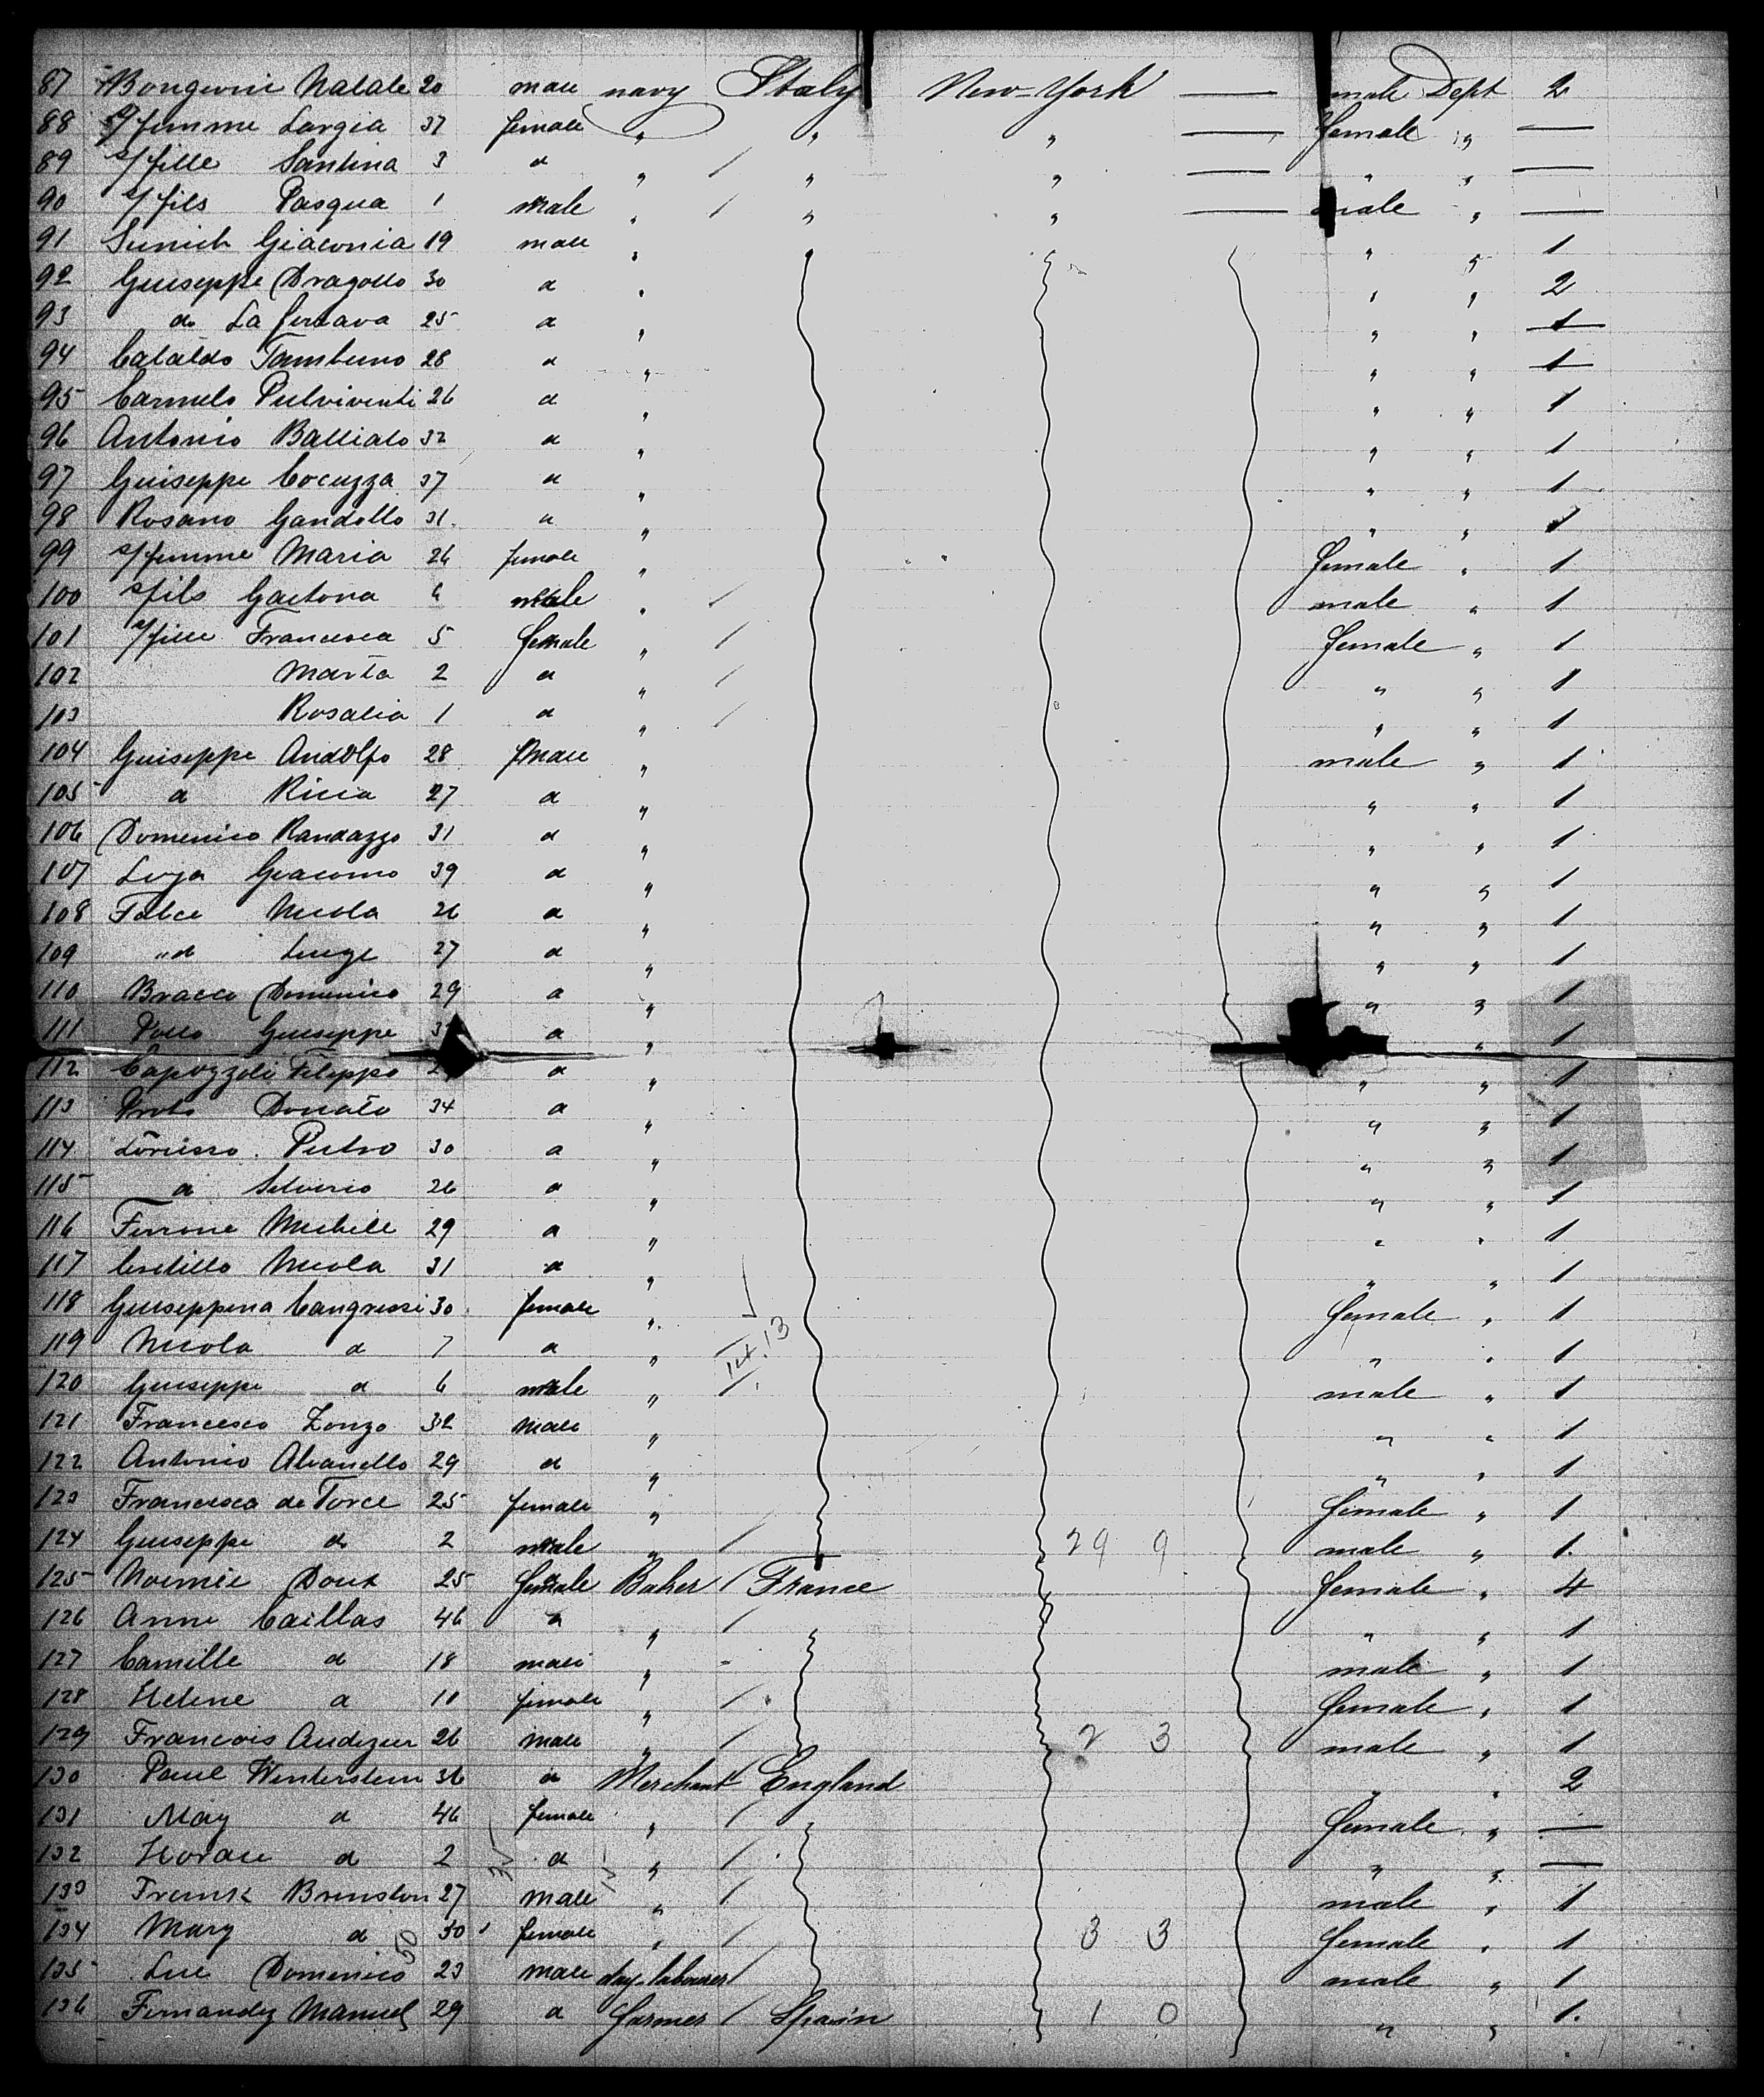 87 Bongiovi Natale 20 male navy Italy New-York — male Dept 2
88 s/femme Largia 37 female " " " — female " —
89 s/fille Santina 3 d " / " " — " " —
90 s/fils Pasqua 1 male " / " " — male " —
91 Giaconia 19 male " " " 1
92 Giuseppe Dragotto 30 d " " " 2
93 do La 25 d " " " 1
94 Cataldo Tamburo 28 d " " " 1
95 Carmelo Pulviventi 26 d " " " 1
96 Antonio Battiato 32 d " " " 1
97 Guiseppe Cocuzza 37 d " " " 1
98 Rosario Gandolfo 31 d " " " 1
99 s/femme Maria 26 female " female " 1
100 s/fils Gaetona 6 male " / male " 1
101 s/fille Francesca 5 female " / female " 1
102 Marta 2 d " / " " 1
103 Rosalia 1 d " / " " 1
104 Guiseppe Andolfo 28 male " male " 1
105 d Ricca 27 d " " " 1
106 Domenico Randazzo 31 d " " " 1
107 Giacomo 39 d " " " 1
108 Falce Nicola 26 d " " " 1
109 " d Luige 27 d " " " 1
110 Bracco Domenico 29 d " " " 1
111 Guiseppe d " " 1
112 Capozzoli Filippo d " " " 1
113 Proto Donato 34 d " " " 1
114 Lorusso Pietro 30 d " " " 1
115 d Silverio 26 d " " " 1
116 Ferrone Michele 29 d " " " 1
117 Nicola 31 d " " " 1
118 Guiseppina Cangressi 30 female " female " 1
119 Nicola d 7 d " 14.13 " " 1
120 Guiseppe d 6 male " / male " 1
121 Francesco Zonzo 32 male " " " 1
122 Antonio Alvanello 29 d " " " 1
123 Francesca de Torce 25 female " female " 1
124 Guiseppe d 2 male " / 29 9 male " 1.
125 Noemie Doux 25 female Baker / France female " 4
126 Anne Caillas 46 d " / " " 1
127 Camille d 18 male " - male " 1
128 Helene d 10 female " / female " 1
129 Francois Audizier 26 male " / 2 3 male " 1
130 Paul Winterstein 36 d Merchant / England " " 2
131 May d 46 female " / female " —
132 Horace d 2 d " / " " —
133 Frank Brinston 27 male " / male " 1
134 Mary d 30 female " / 3 3 female " 1
135 Domenico 23 male day-labourer / male " 1
136 Fernandez Manuel 29 d farmer / Spain 1 0 " " 1.